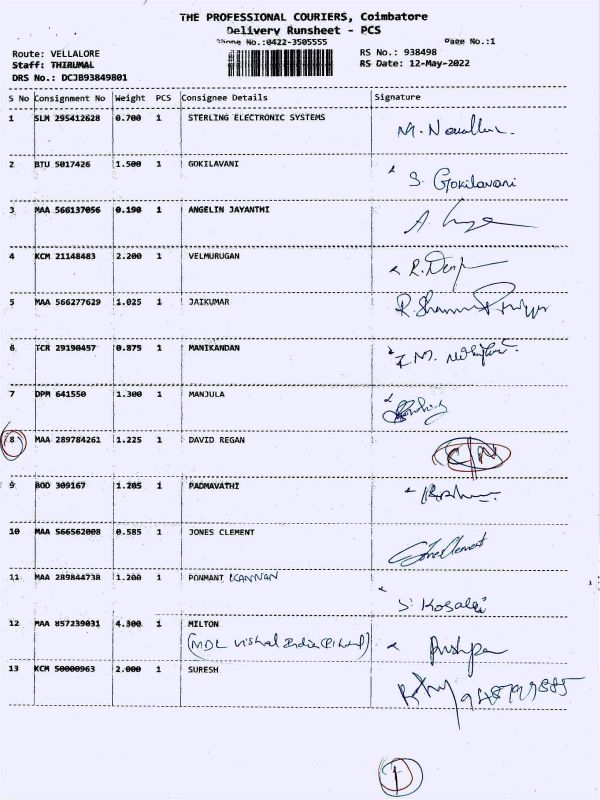 THE PROFESSIONAL COURIERS, Coimbatore
Delivery Runsheet - PCS
Phone No.:0422-3505555 Page No.:1
Route: VELLALORE RS No.: 938498
Staff: THIRUMAL RS Date: 12-May-2022
DRS No.: DCJB93849801
S No Consignment No Weight PCS Consignee Details Signature
1 SLM 295412628 0.700 1 STERLING ELECTRONIC SYSTEMS M.
2 BTU 5017426 1.500 1 GOKILAVANI S. Gokilavani
3 MAA 566137056 0.190 1 ANGELIN JAYANTHI A.
4 KCM 21148483 2.200 1 VELMURUGAN R.
5 MAA 566277629 1.025 1 JAIKUMAR R.
6 TCR 29190457 0.875 1 MANIKANDAN
7 DPM 641550 1.300 1 MANJULA
8 MAA 289784261 1.225 1 DAVID REGAN C/N
9 BOD 309167 1.205 1 PADMAVATHI
10 MAA 566562008 0.585 1 JONES CLEMENT Jones Clement
11 MAA 289844738 1.200 1 PONMANI KANNAN S. Kosalai
12 MAA 857239031 4.300 1 MILTON Pushpa
(MDL Vishal India (P) Ltd)
13 KCM 50000963 2.000 1 SURESH
1